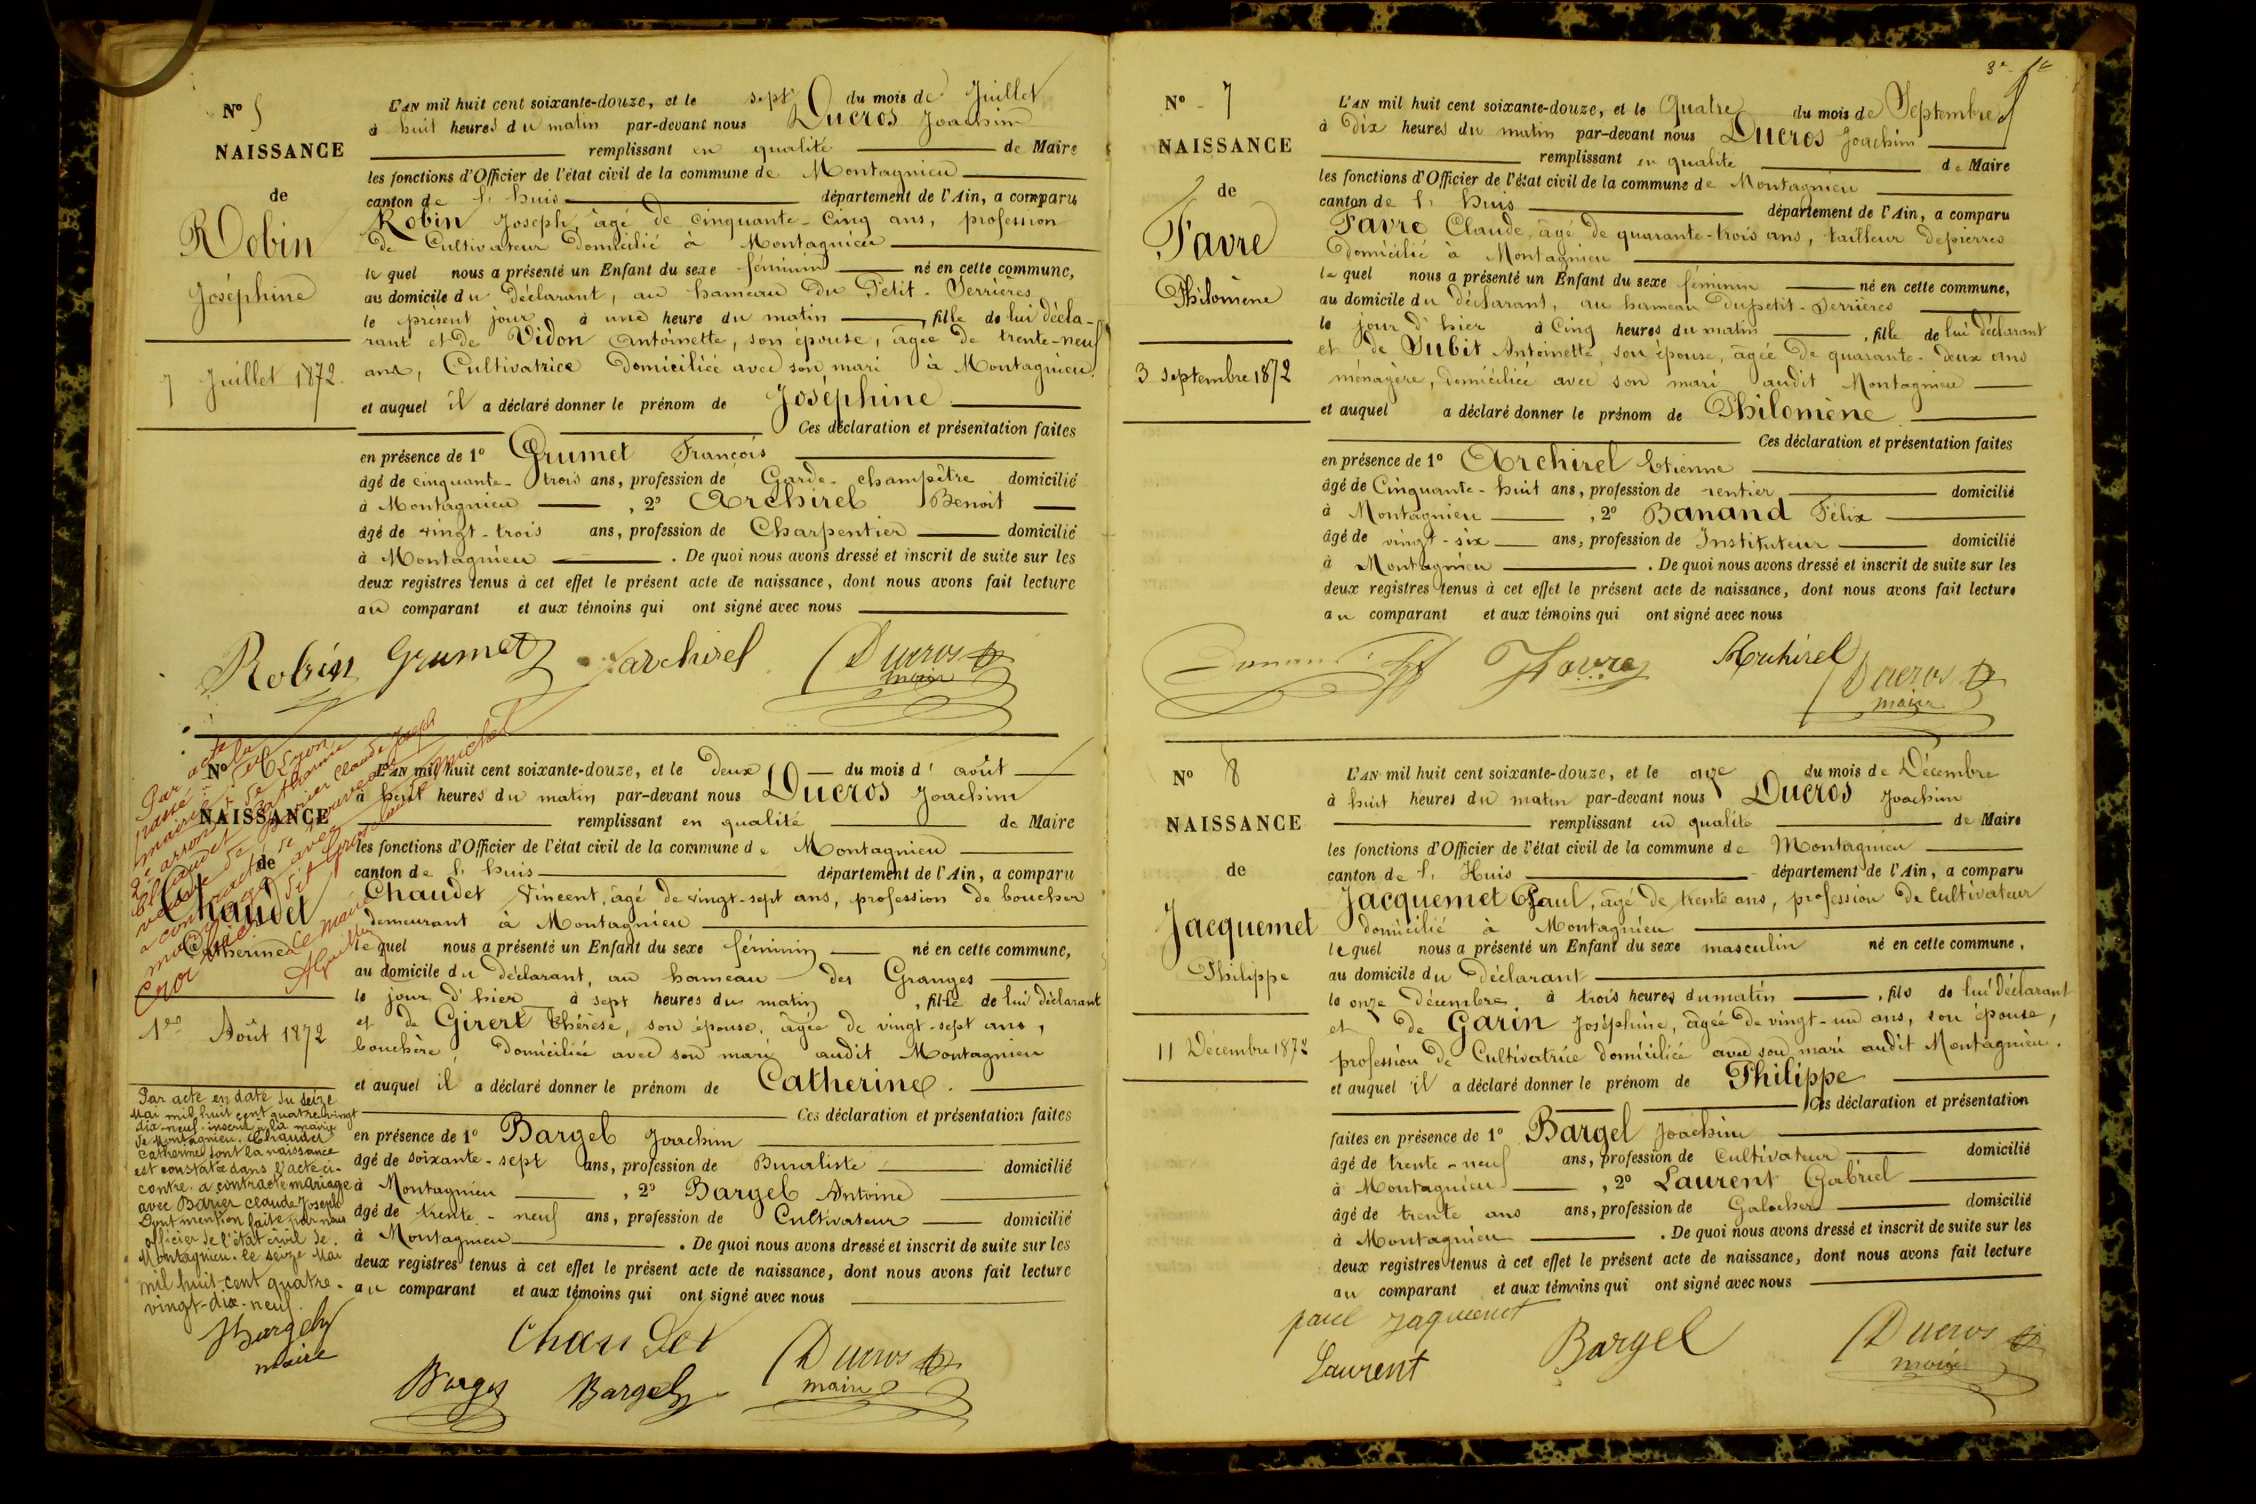 N° 5
NAISSANCE
de
Robin
Joséphine
7 Juillet 1872.
L'AN mil huit cent soixante-douze, et le sept du mois de Juillet
à huit heures du matin par-devant nous Ducros Joachim
remplissant en qualité de Maire
les fonctions d'Officier de l'état civil de la commune de Montagnieu
canton de l'huis département de l'Ain, a comparu
Robin Joseph, âgé de cinquante-cinq ans, profession
de Cultivateur domicilié à Montagnieu
lequel nous a présenté un Enfant du sexe féminin né en cette commune,
au domicile du déclarant, au hameau du Petit-Serrières
le présent jour à une heure du matin, fille de lui décla-
rant et de Vidon Antoinette, son épouse, âgée de trente-neuf
ans, Cultivatrice domiciliée avec son mari à Montagnieu.
et auquel il a déclaré donner le prénom de Joséphine
Ces déclaration et présentation faites
en présence de 1° Grumet François
âgé de cinquante-trois ans, profession de Garde-champêtre domicilié
à Montagnieu, 2° Archirel Benoit
âgé de vingt-trois ans, profession de Charpentier domicilié
à Montagnieu. De quoi nous avons dressé et inscrit de suite sur les
deux registres tenus à cet effet le présent acte de naissance, dont nous avons fait lecture
au comparant et aux témoins qui ont signé avec nous
Robin Grumet archirel Ducros
maire
N° 6
NAISSANCE
de
Chaudet
Catherine
1er Août 1872
Par acte
passé à la
mairie du
2e arront de Lyon
Chaudet Catherine
veuve de Barier Claude Joseph
a contracté de nouveau
mariage avec
dit Gros Claude Michel
Le Maire
L'AN mil huit cent soixante-douze, et le deux du mois d'août
à huit heures du matin par-devant nous Ducros Joachim
remplissant en qualité de Maire
les fonctions d'Officier de l'état civil de la commune de Montagnieu
canton de l'huis département de l'Ain, a comparu
Chaudet Vincent, âgé de vingt-sept ans, profession de boucher
demeurant à Montagnieu
lequel nous a présenté un Enfant du sexe féminin né en cette commune,
au domicile du déclarant, au hameau des Granges
le jour d'hier à sept heures du matin, fille de lui déclarant
et de Girert thérèse, son épouse, âgée de vingt-sept ans,
bouchère, domiciliée avec son mari audit Montagnieu
et auquel il a déclaré donner le prénom de Catherine.
Ces déclaration et présentation faites
en présence de 1° Bargel Joachim
âgé de soixante-sept ans, profession de Buraliste domicilié
à Montagnieu, 2° Bargel Antoine
âgé de trente-neuf ans, profession de Cultivateur domicilié
à Montagnieu. De quoi nous avons dressé et inscrit de suite sur les
deux registres tenus à cet effet le présent acte de naissance, dont nous avons fait lecture
au comparant et aux témoins qui ont signé avec nous
Par acte en date du seize
Mai mil huit cent quatre-vingt
dix-neuf inscrit à la mairie
de Montagnieu. Chaudet
Catherine dont la naissance
est constatée dans l'acte ci-
contre. a contracté mariage
avec Barier Claude Joseph
Dont mention faite par nous
officier de l'état civil de
Montagnieu. le seize Mai
mil huit-cent quatre-
vingt-dix-neuf.
Bargel
maire
Chaudet
Bargel Bargel Ducros
maire
N° 7
NAISSANCE
de
Favre
Philomène
3 septembre 1872
L'AN mil huit cent soixante-douze, et le Quatre du mois de Septembre
à Dix heures du matin par-devant nous Ducros Joachim
remplissant en qualité de Maire
les fonctions d'Officier de l'état civil de la commune de Montagnieu
canton de l'huis département de l'Ain, a comparu
Favre Claude, âgé de quarante-trois ans, tailleur de pierres
domicilié à Montagnieu
lequel nous a présenté un Enfant du sexe féminin né en cette commune,
au domicile du déclarant, au hameau du petit-Serrières
le jour d'hier à Cinq heures du matin, fille de lui déclarant
et de Subit Antoinette, son épouse, âgée de quarante-deux ans
ménagère, domiciliée avec son mari audit Montagnieu
et auquel a déclaré donner le prénom de Philomène
Ces déclaration et présentation faites
en présence de 1° Archirel Etienne
âgé de Cinquante-huit ans, profession de rentier domicilié
à Montagnieu, 2° Banand Félix
âgé de vingt-six ans, profession de Instituteur domicilié
à Montagnieu. De quoi nous avons dressé et inscrit de suite sur les
deux registres tenus à cet effet le présent acte de naissance, dont nous avons fait lecture
au comparant et aux témoins qui ont signé avec nous
Favre Archirel Ducros
maire
N° 8
NAISSANCE
de
Jacquemet
Philippe
11 Décembre 1872
L'AN mil huit cent soixante-douze, et le onze du mois de Décembre
à huit heures du matin par-devant nous Ducros Joachim
remplissant en qualité de Maire
les fonctions d'Officier de l'état civil de la commune de Montagnieu
canton de l'Huis département de l'Ain, a comparu
Jacquemet Paul, âgé de trente ans, profession de Cultivateur
domicilié à Montagnieu
lequel nous a présenté un Enfant du sexe masculin né en cette commune,
au domicile du déclarant
le onze décembre à trois heures du matin, fils de lui déclarant
et de Garin Joséphine, âgée de vingt-un ans, son épouse,
profession de Cultivatrice domiciliée avec son mari audit Montagnieu.
et auquel il a déclaré donner le prénom de Philippe
Ces déclaration et présentation
faites en présence de 1° Bargel Joachim
âgé de trente-neuf ans, profession de Cultivateur domicilié
à Montagnieu, 2° Laurent Gabriel
âgé de trente ans ans, profession de Galocher domicilié
à Montagnieu. De quoi nous avons dressé et inscrit de suite sur les
deux registres tenus à cet effet le présent acte de naissance, dont nous avons fait lecture
au comparant et aux témoins qui ont signé avec nous
paul jaquemet
Laurent Bargel Ducros
maire